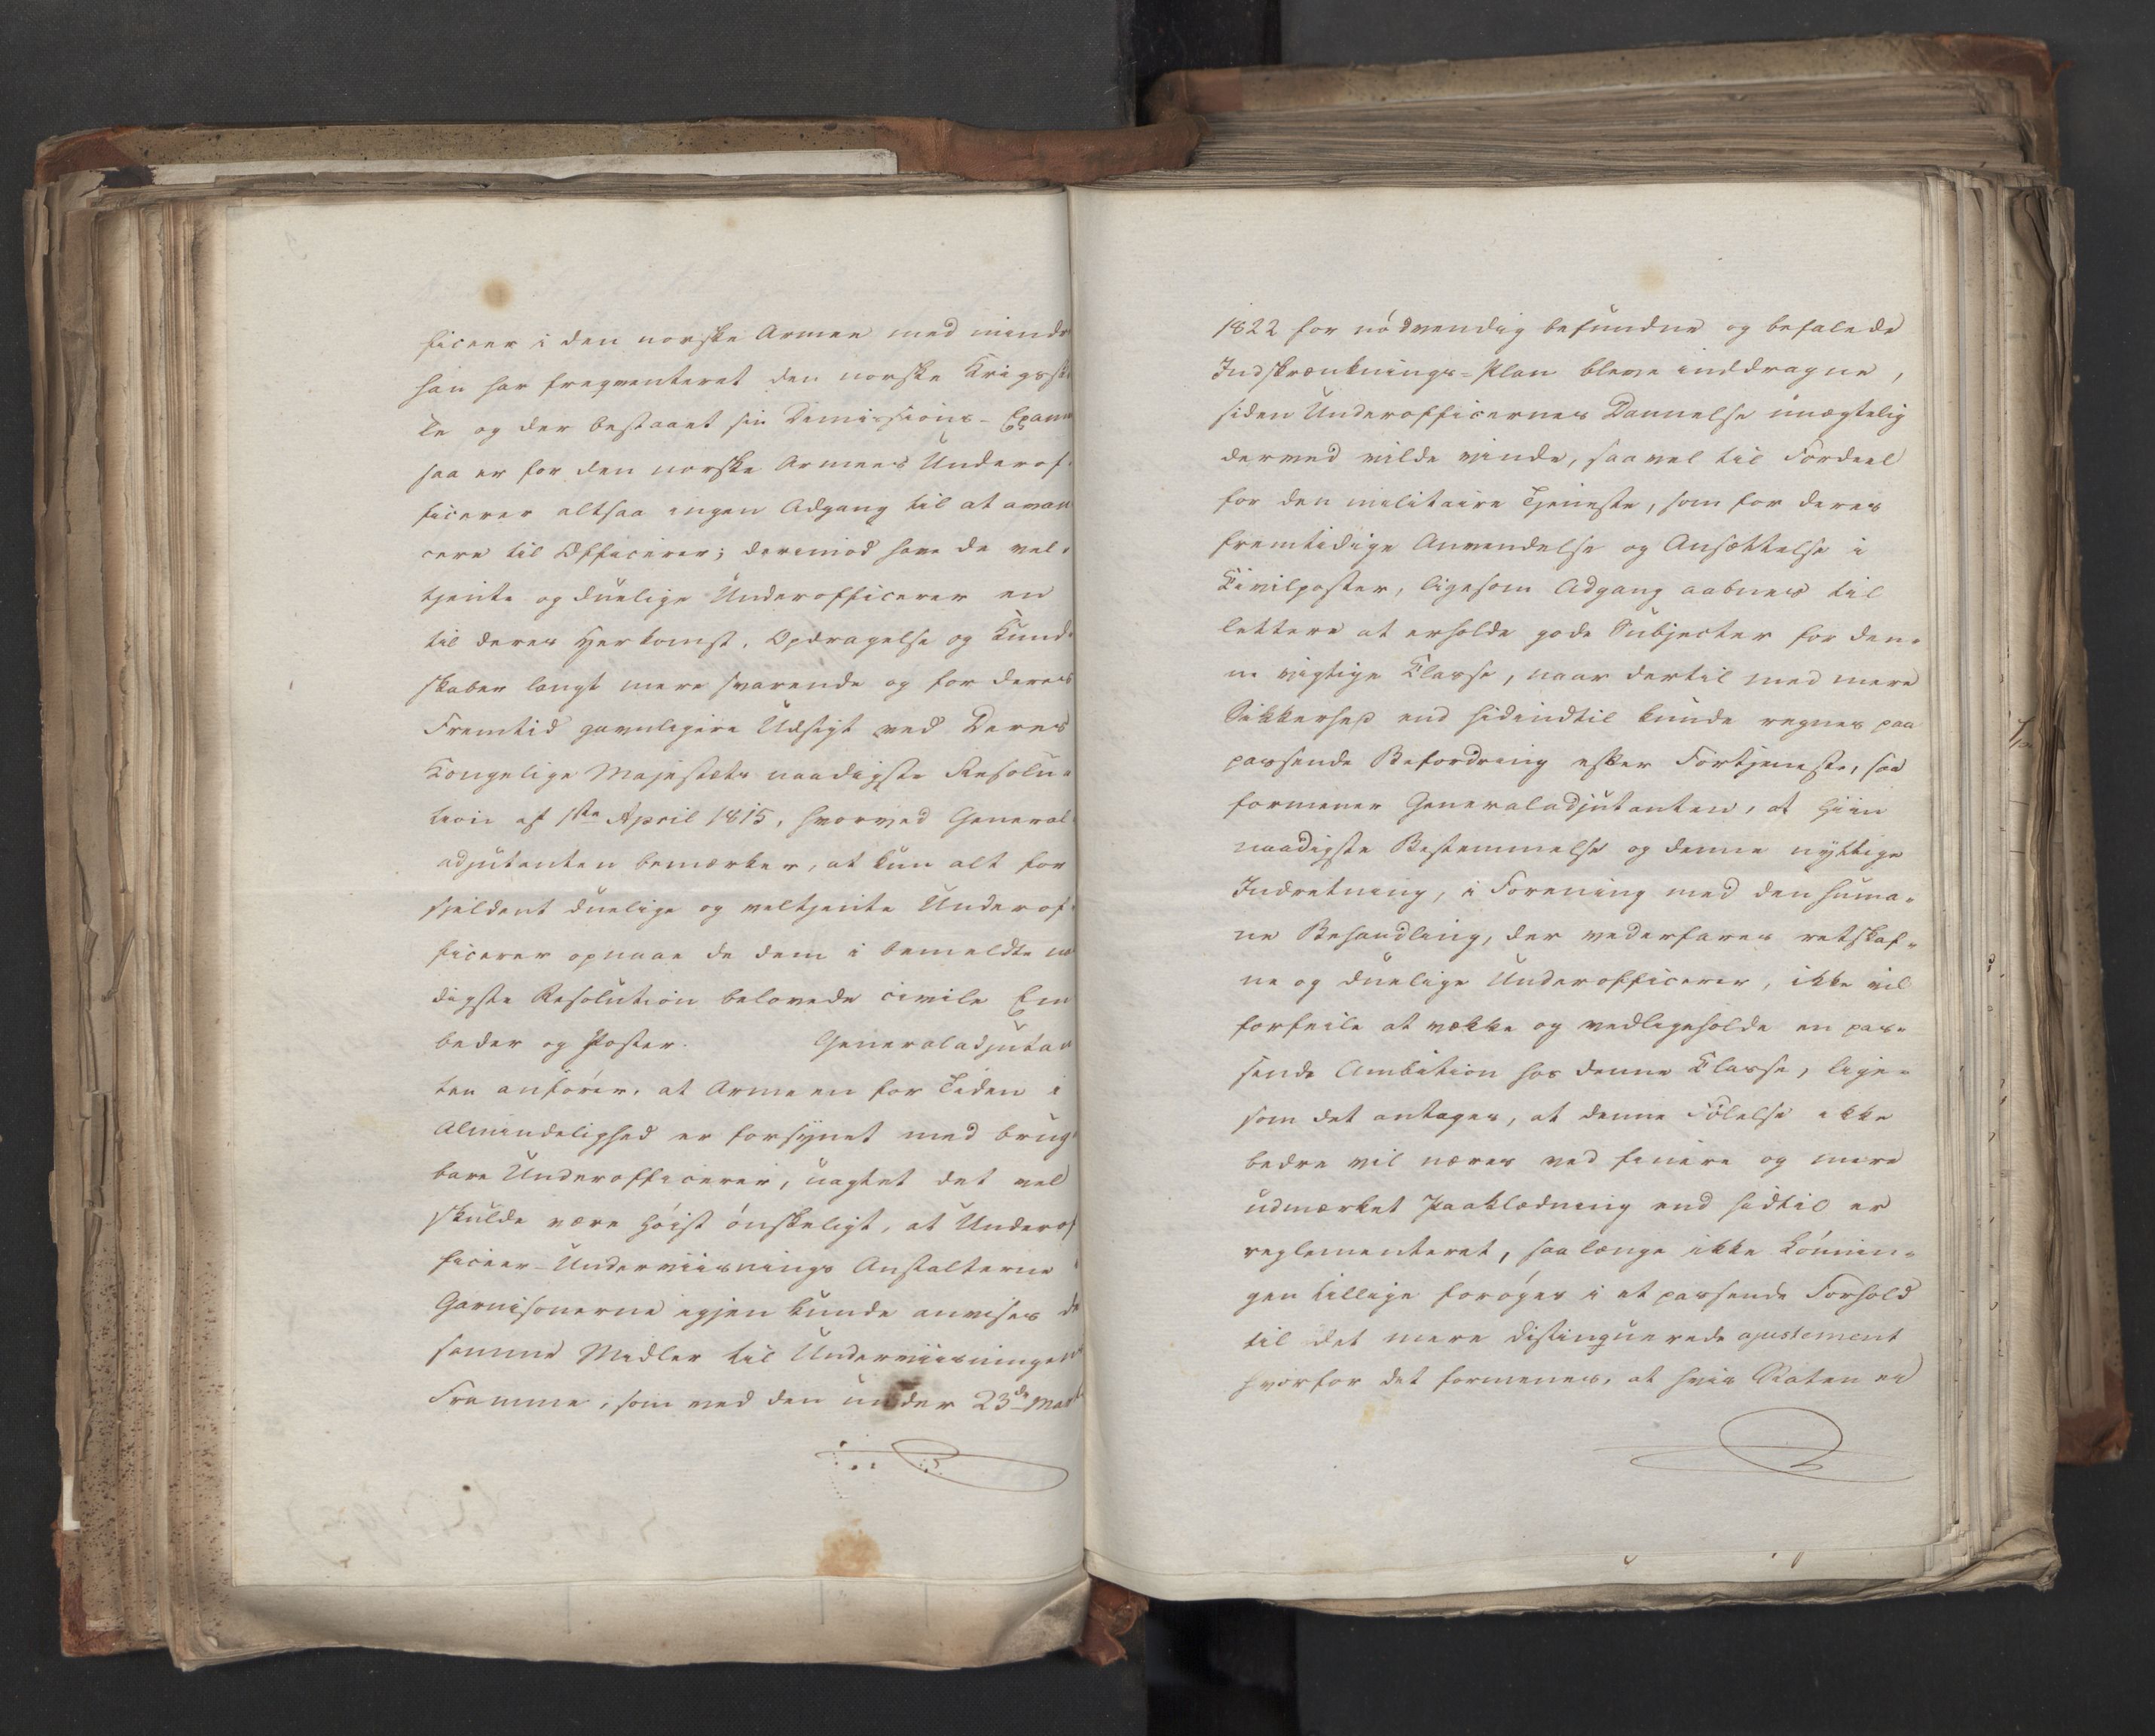 ficeer i den norske Armee med mindr
han har freqventeret den norske Krigssko
le og der bestaaet sin Dimissions-Exam
saa er for den norske Armees Underof-
ficerer altsaa ingen Adgang til at avan
cere til Officerer; derimod have de vel-
tjente og duelige Underofficerer en
til deres Herkomst, Opdragelse og Kund-
skaber langt mere svarende og for deres
Fremtid gavnligere Udsigt ved Deres
Kongelige Majestæts naadigste Resolu-
tion af 1ste April 1815, hvorved General-
adjutanten bemærker, at kun alt for
sjeldent duelige og veltjente Underof-
ficerer opnaae de dem i bemeldte naa
digste Resolution belovede civile Em
beder og Poster. Generaladjutan
ten anfører, at Armeen for Tiden i
Almindelighed er forsynet med brug-
bare Underofficerer, uagtet det vel
skulde være høist ønskeligt, at Underof
ficeer-Underviisnings Anstalterne i
Garnisonerne igjen kunde anvises de
samme Midler til Underviisningens
Fremme, som ved den under 23de Marts
1822 for nödvendig befundne og befalede
Indskrænknings-Plan bleve inddragne,
siden Underofficerernes Dannelse unægtelig
derved vilde vinde, saavel til Fordeel
for den militaire Tjeneste, som for deres
fremtidige Anvendelse og Ansættelse i
Civilposter, ligesom Adgang aabnes til
lettere at erholde gode Subjecter for den-
ne vigtige Classe, naar dertil med mere
Sikkerhed end hidindtil kunde regnes paa
passende Befordring efter Fortjeneste, saa
formener Generaladjutanten, at hiin
naadigste Bestemmelse og denne nyttige
Indretning, i Forening med den huma-
ne Behandling, der vederfares retskaf-
ne og duelige Underofficerer, ikke vil
forfeile at vække og vedligeholde en pas-
sende Ambition hos denne Classe, lige-
som det antages, at denne Følelse ikke
bedre vil næres ved finere og mere
udmærket Paaklædning end hidtil er
reglementeret, saalænge ikke Lønnin-
gen tillige forøges i et passende Forhold
til det mere distinguerede ajustement
hvorfor det formenes, at hvis Staten er